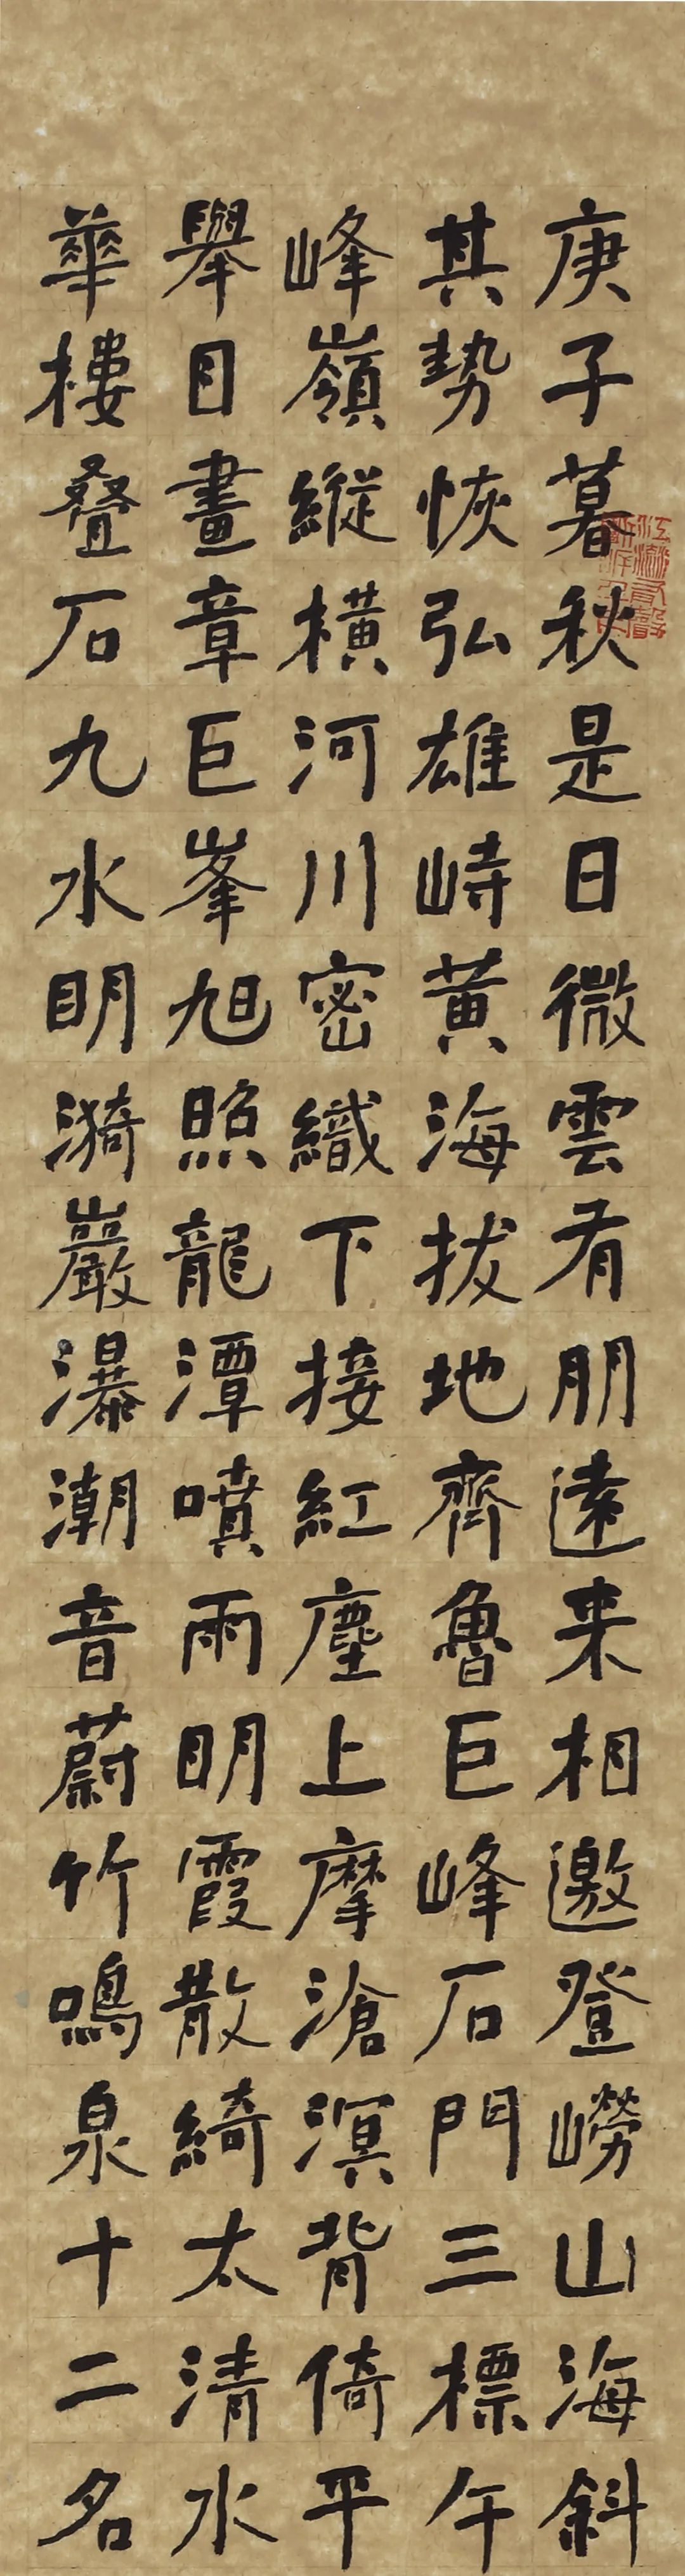 庚子暮秋是日微雲有朋遠来相邀登嶗山海斜
其勢恢弘雄峙黃海拔地齊魯巨峰石門三標午
峰嶺縱橫河川密織下接紅塵上摩滄溟背倚平
舉目畫章巨峯旭照龍潭噴雨明霞散綺太清水
華樓疊石九水明漪巖瀑潮音蔚竹鳴泉十二名